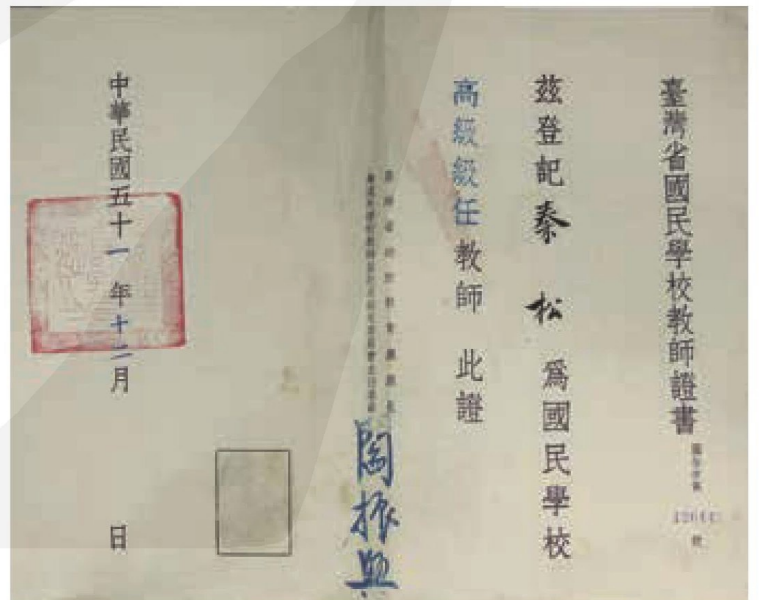 臺灣省國民學校教師證書
號
茲登記秦松為國民學校
高級級任教師此證
閻振興
中華民國五十一年十二月 日